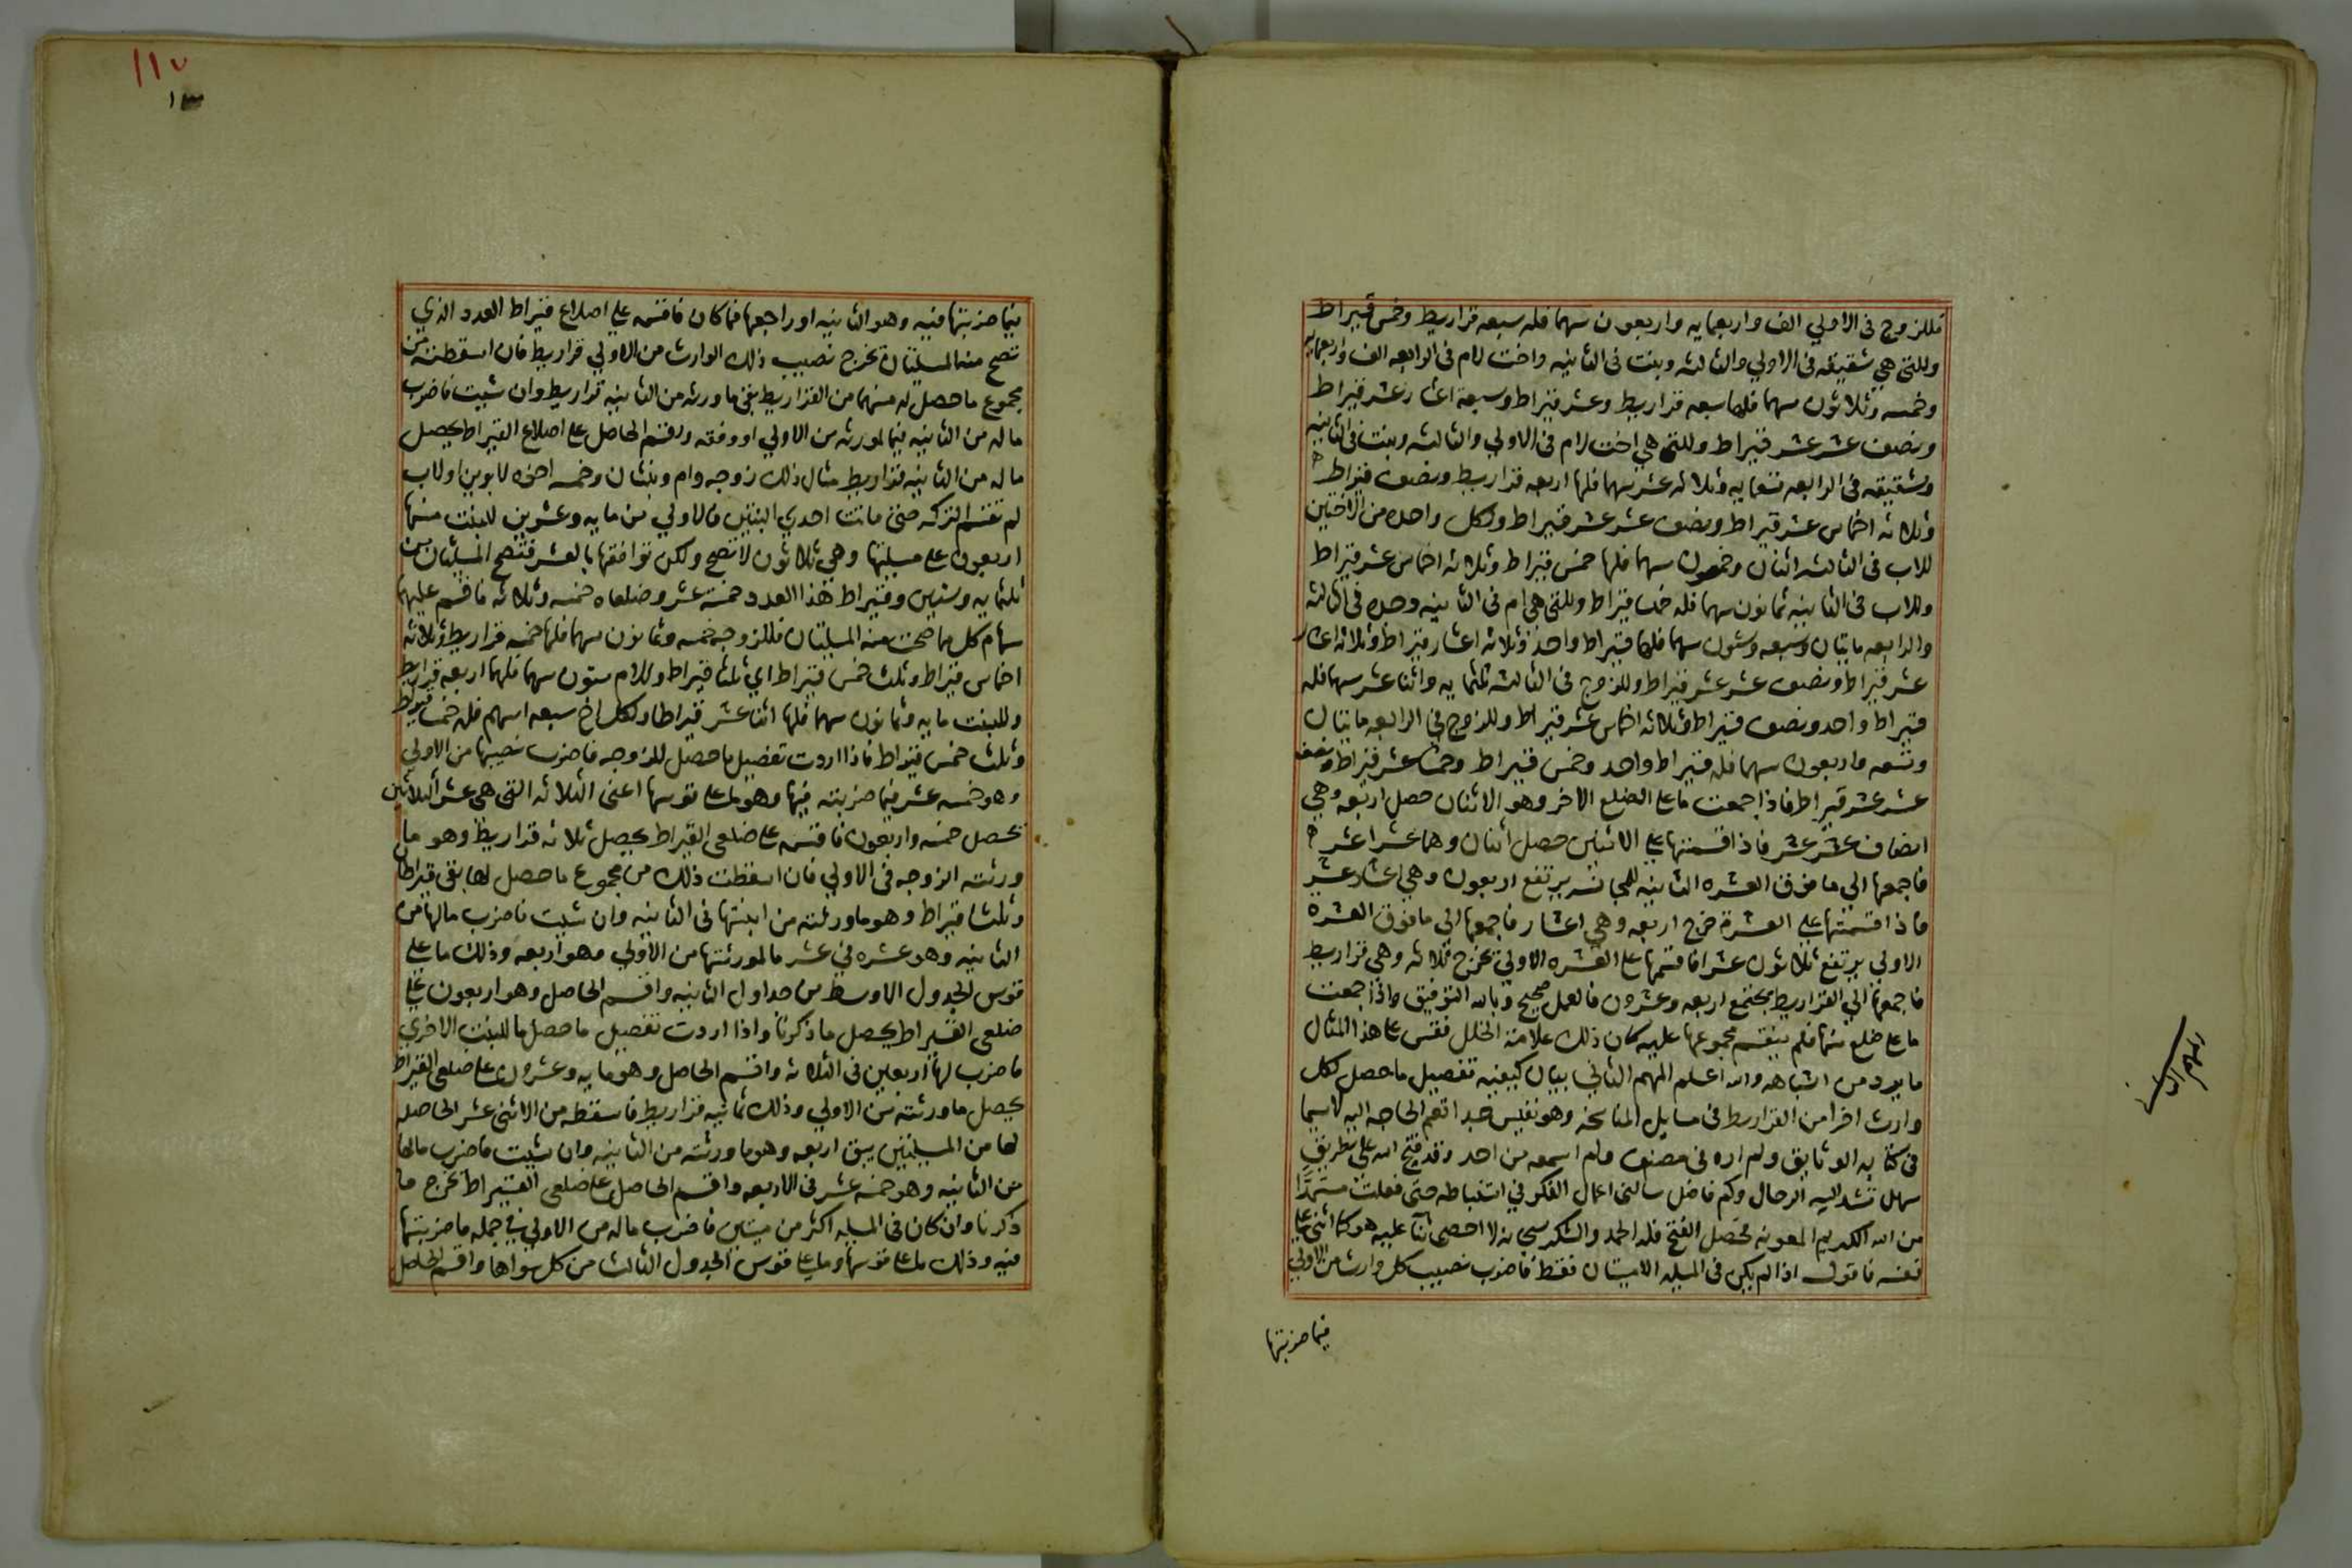 فللزوج في الاولي الف واربعمايه واربعون سهما فله سبعه قراريط وخمس قيراط
وللتي هي شقيقه في الاولي والثالثه وبنت في الثانيه واخت لام في الرابعه الف واربعمايه
وخمسه وثلاثون سهما فلها سبعه قراريط وعشر قيراط وسبعة اعشار عشر قيراط
ونصف عشر عشر قيراط وللتي هي اخت لام في الاولي والثالثه وبنت في الثانيه
وشقيقه في الرابعه تسعمايه وثلاثه عشر سهما فلها اربعه قراريط ونصف قيراط
وثلاثه اخماس عشر قيراط ونصف عشر عشر قيراط ولكل واحده من الاختين
للاب في الثالثه اثنان وخمسون سهما فلها خمس قيراط وثلاثه اخماس عشر قيراط
وللاب في الثانيه ثمانون سهما فله خمسا قيراط وللتي هي ام في الثانيه وجده في الثالثه
والرابعه مايتان وسبعه وستون سهما فلها قيراط واحد وثلاثه اعشار قيراط وثلاثه اعشار
عشر قيراط ونصف عشر عشر قيراط وللزوج في الثالثه ثلثمايه واثنا عشر سهما فله
قيراط واحد ونصف قيراط وثلاثه اخماس عشر قيراط وللزوج في الرابعه مايتان
وتسعه واربعون سهما فله قيراط واحد وخمس قيراط وخمسا عشر قيراط ونصف
عشر عشر قيراط فاذا جمعت ما علي الضلع الاخر وهو الاثنان حصل اربعه وهي
انصاف عشر عشر فاذا قسمتها علي الاثنين حصل اثنان وهما عشرا عشر
فاجمعها الي ما فوق العشره الثانيه للمجانسه يرتفع اربعون وهي اعشار عشر
فاذا قسمتها علي العشرة خرج اربعه وهي اعشار فاجمعها الي ما فوق العشرة
الاولي يرتفع ثلاثون عشرا فاقسمها علي العشره الاولي تخرج ثلاثه وهي قراريط
فاجمعها الي القراريط يجتمع اربعه وعشرون فالعمل صحيح وبالله التوفيق واذا جمعت
ما علي ضلع منها فلم ينقسم مجموعها عليه كان ذلك علامة الخلل فقس علي هذا المثال
ما يرد من اشباهه والله اعلم المهم الثاني بيان كيفيه تفصيل ما حصل لكل
وارث اخرا من القراريط في مسايل المناسخه وهو نفيس جدا تعم الحاجه اليه لاسيما
في كتابه الوثايق ولم اره في مصنف ولم اسمعه من احد وقد فتح الله علي بطريق
سهل تشد اليه الرحال وكم فاضل سالني اعمال الفكر في استنباطه حتي فعلت مستمدا
من الله الكريم المعونه فحصل الفتح فله الحمد والشكر سبحانه لا احصي ثنا عليه هو كما اثني علي
نفسه فاقول اذا لم يكن في المسيله الا ميتان فقط فاضرب نصيب كل وارث من الاولي
فيما ضربتها
المهم الثاني
١١٧
فيما ضربتها فيه وهو الثانيه او راجعها فما كان فاقسمه علي اضلاع قيراط العدد الذي
تصح منه المسيلتان تخرج نصيب ذلك الوارث من الاولي قراريط فان اسقطته من
مجموع ما حصل له منهما من القراريط بقي ما ورثه من الثانيه قراريط وان شيت فاضرب
ما له من الثانيه فيما لمورثه من الاولي او وفقه واقسم الحاصل علي اضلاع القيراط يحصل
ما له من الثانيه قراريط مثال ذلك زوجه وام وبنتان وخمسه اخوه لابوين او لاب
لم تقسم التركه حتي ماتت احدي البنتين فالاولي من مايه وعشرين للبنت منها
اربعون علي مسيلتها وهي ثلاثون لا تصح ولكن توافقها بالعشر فتصح المسيلتان من
ثلثمايه وستين وقيراط هذا العدد خمسة عشر وضلعاه خمسه وثلاثه فاقسم عليهما
سهام كل ممن صحت منه المسيلتان فللزوجه خمسه وثمانون سهما فلها خمسه قراريط وثلاثه
اخماس قيراط وثلث خمس قيراط اي ثلثا قيراط وللام ستون سهما فلها اربعه قراريط
وللبنت مايه وثمانون سهما فلها اثنا عشر قيراطا ولكل اخ سبعه اسهم فله خمسا قيراط
وثلث خمس قيراط فاذا اردت تفصيل ما حصل للزوجه فاضرب نصيبها من الاولي
وهو خمسه عشر فيما ضربته فيها وهو ما علي قوسها اعني الثلاثه التي هي عشر الثلاثين
تحصل خمسه واربعون فاقسمه علي ضلعي القيراط يحصل ثلاثه قراريط وهو ما
ورثته الزوجه في الاولي فان اسقطت ذلك من مجموع ما حصل لها بقي قيراطان
وثلثا قيراط وهو ما ورثته من ابنتها في الثانيه وان شيت فاضرب ما لها من
الثانيه وهو عشره في عشر ما لمورثتها من الاولي وهو اربعه وذلك ما علي
قوس الجدول الاوسط من جداول الثانيه واقسم الحاصل وهو اربعون علي
ضلعي القيراط يحصل ما ذكرنا واذا اردت تفصيل ما حصل للبنت الاخري
فاضرب لها اربعين في الثلاثه واقسم الحاصل وهو مايه وعشرون علي ضلعي القيراط
يحصل ما ورثته من الاولي وذلك ثمانيه قراريط فاسقطه من الاثني عشر الحاصله
لها من المسيلتين يبق اربعه وهو ما ورثته من الثانيه وان شيت فاضرب ما لها
من الثانيه وهو خمسه عشر في الاربعه واقسم الحاصل علي ضلعي القيراط تخرج ما
ذكرنا وان كان في المسيله اكثر من ميتين فاضرب ما له من الاولي في جمله ما ضربتها
فيه وذلك ما علي قوسها وما علي قوس الجدول الثالث من كل سواها واقسم الحاصل